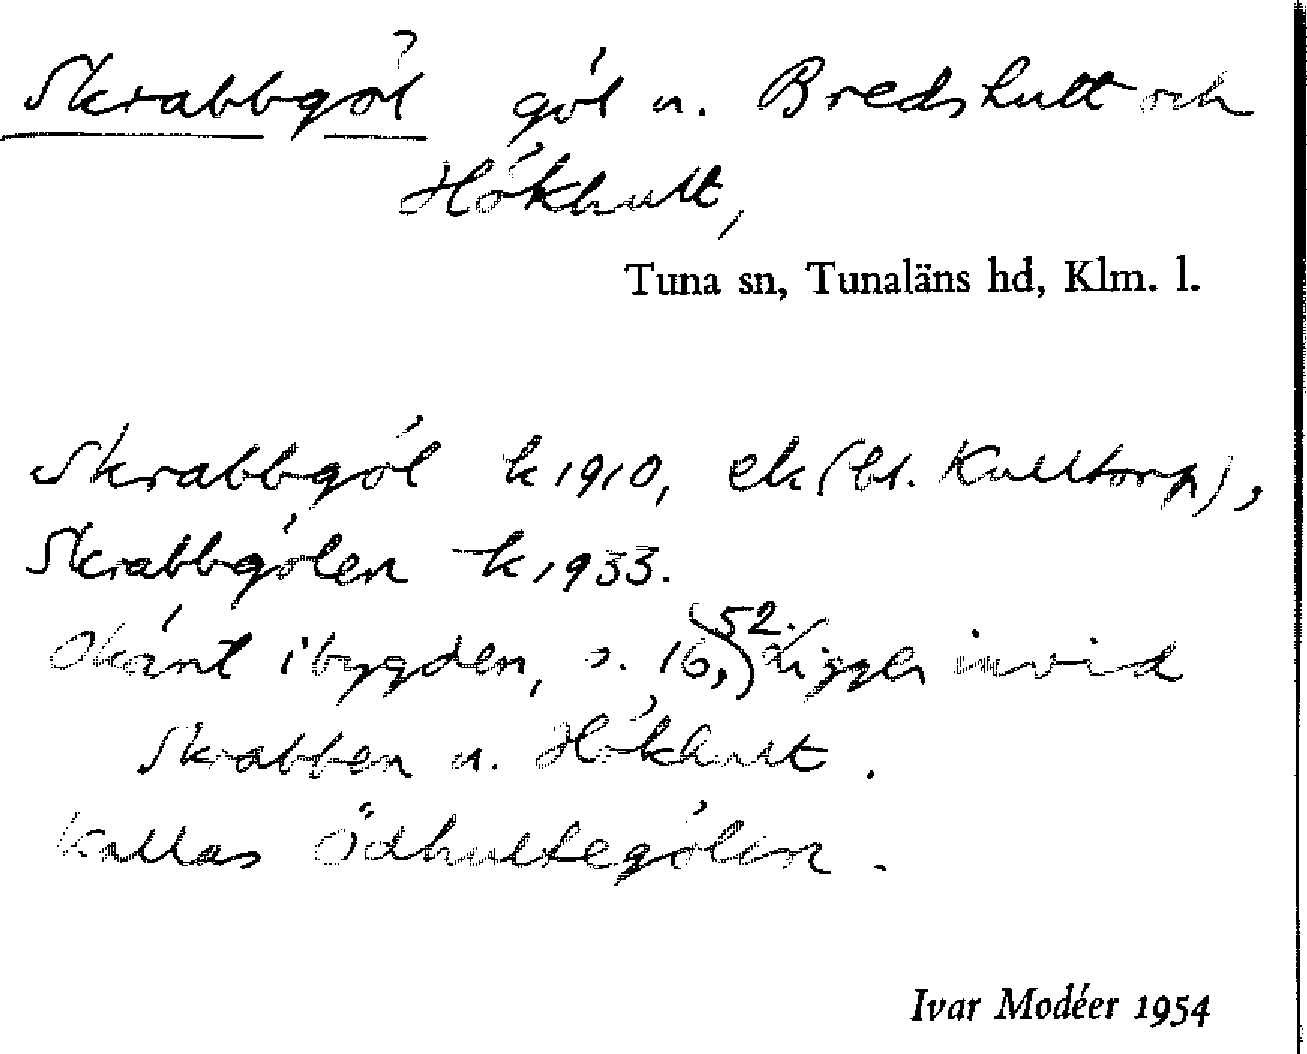 Skrabbgöl göl n. Bredshult och
Hökhult,
Tuna sn, Tunaläns hd, Klm. l.
Skrabbgöl k 1910, ek (bl. Kulltorp),
Skrabbgölen k 1933.
Okänt i bygden, s. 16, 52. Ligger invid
Skrabben n. Hökhult.
Kallas Ödhultegölen.
Ivar Modéer 1954